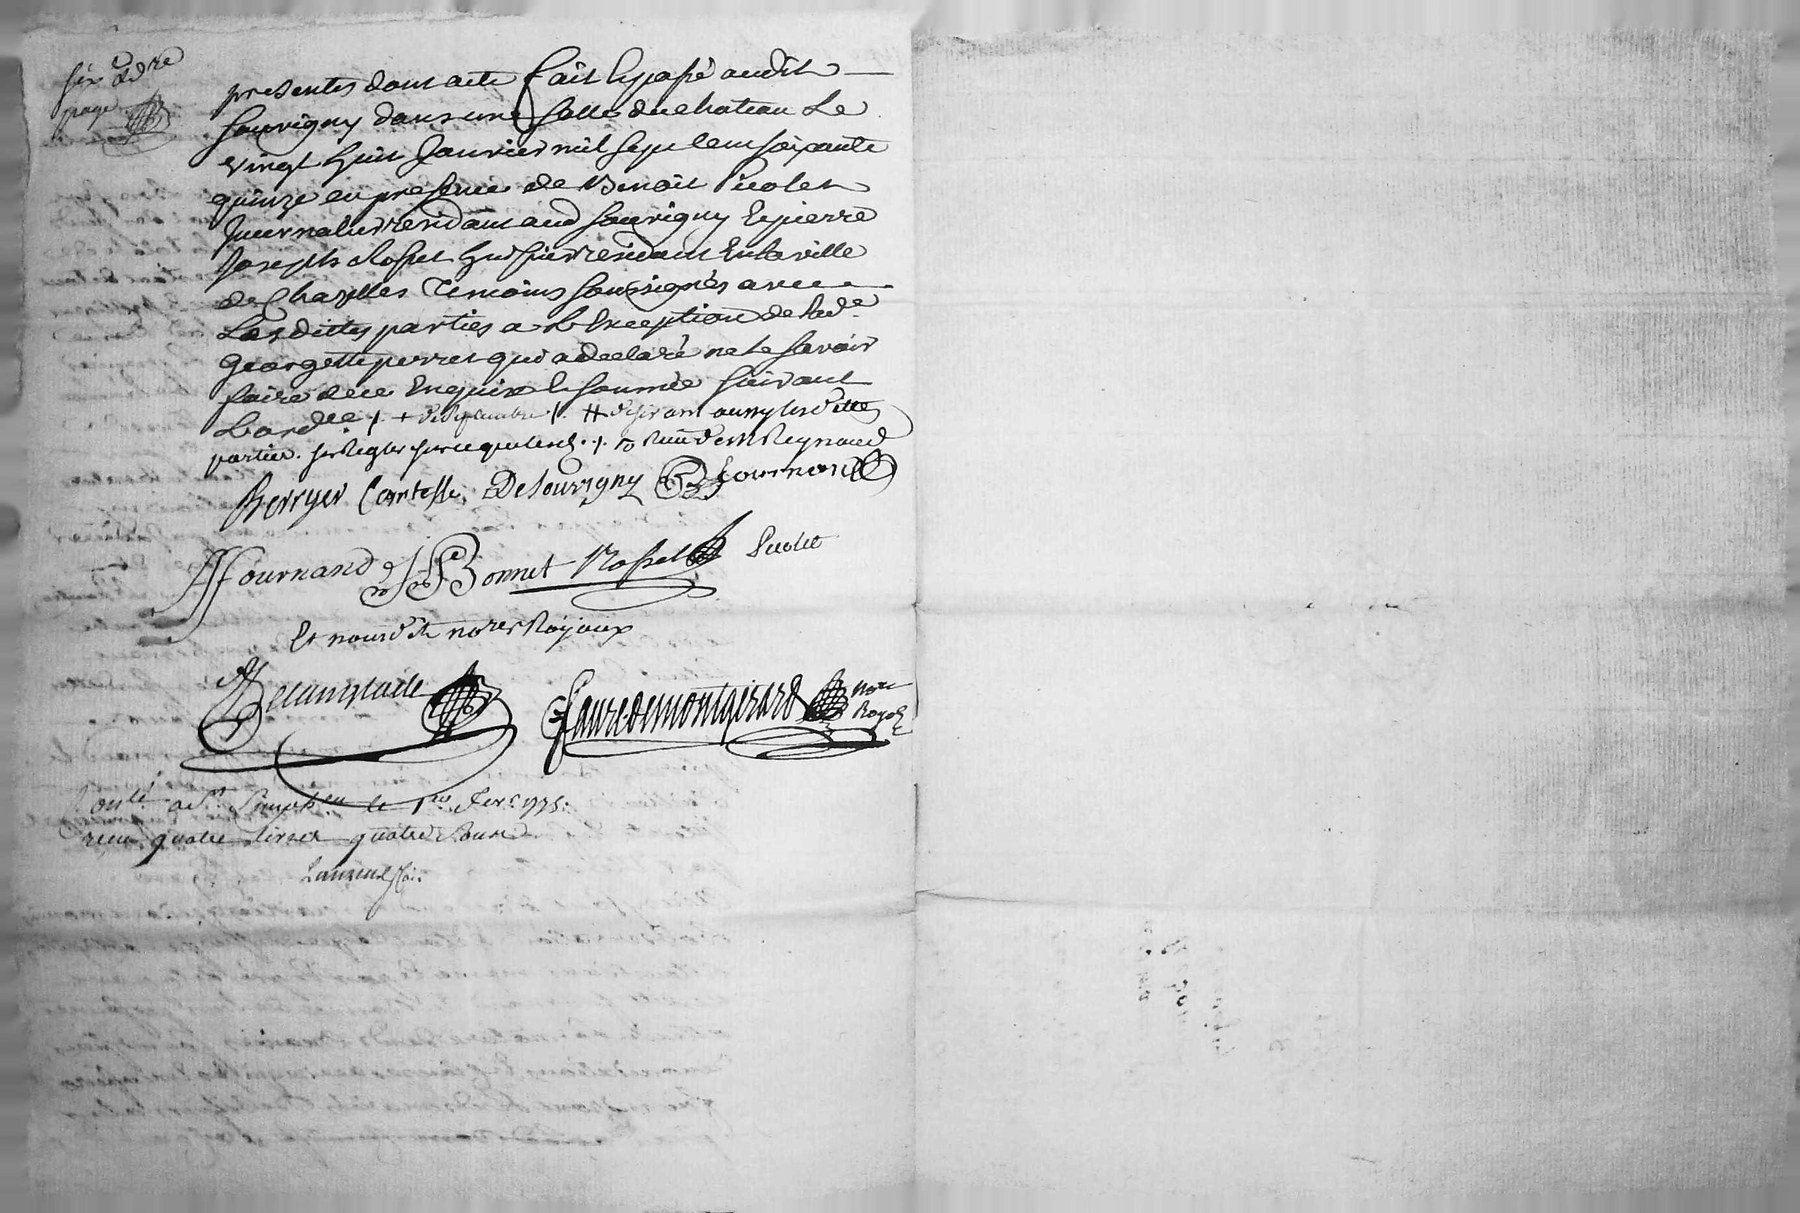 six et dre
page
presentes dont acte fait et passé audit
Souvigny dans une salle du chateau le
vingt huit Janvier mil sept cent soixante
quinze en presence de Benoit Picolet
Journalier residant aud Souvigny et pierre
Joseph Rosset huissier residant en la ville
de Chazelles temoins soussignés avec
Lesdittes parties a L'Exception de lade
Georgette perret qui a declaré ne le savoir
faire de ce enquise et sommée suivant
Lordce /. + /. # desirant aussy lesdittes
parties se Regler sur ce ./. Reynaud
Berryer Comtesse De Souvigny Fournand
Fournand Bonnet Rosset Picolet
Et nous dits nores Royaux
Faure de montgirard nore Royal
Conlé a St le 1er fevr 1775.
recu quatre livres quatre sous